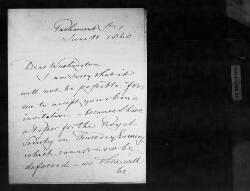 Parliament St
June 11 1866
Dear Washington
I am sorry that it
will not be possible for
me to accept your kind
invitation – because I have
a Paper for the Royal
Society on Thursday Evening
which cannot now be
deferred – as there will
be